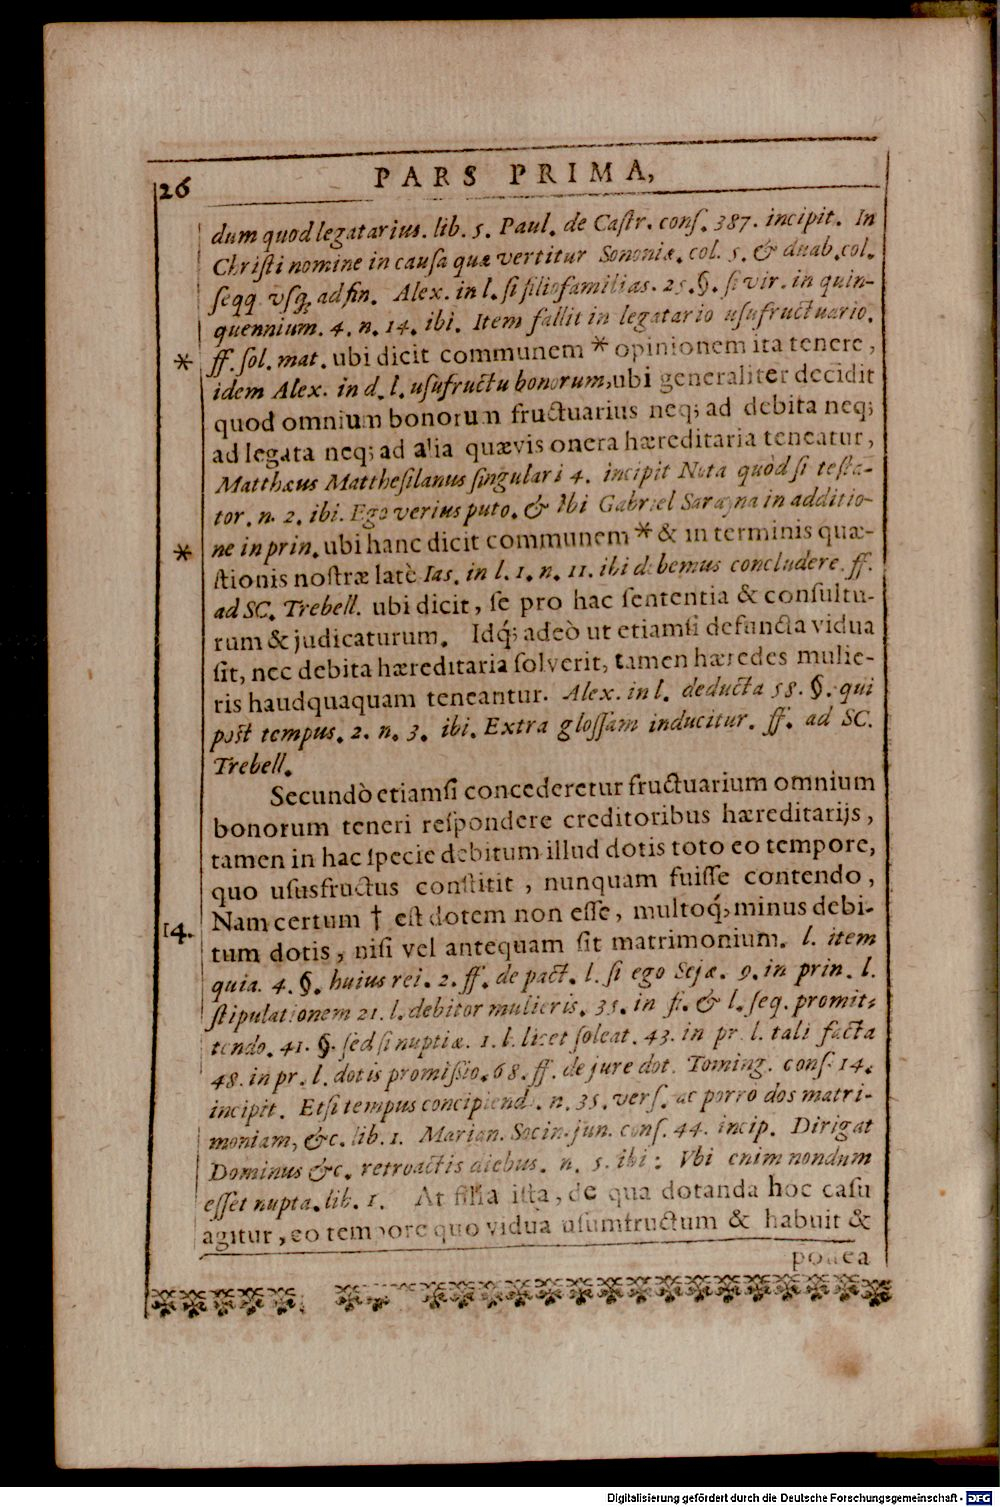 26 PARS PRIMA,
dum quod legatarius. lib. 5. Paul. de Caſtr. conſ. 387. incipit. In
Chriſti nomine in cauſa quæ vertitur Sononiæ. col. 5. & duab. col.
ſeqq. vſq; ad fin. Alex. in l. ſi filiofamilias. 25. §. ſi vir. in quin-
quennium. 4. n. 14. ibi. Item fallit in legatario uſufructuario.
* ff. ſol. mat. ubi dicit communem * opinionem ita tenere,
idem Alex. in d. l. uſufructu bonorum, ubi generaliter decidit
quod omnium bonorum fructuarius neq; ad debita neq;
ad legata neq; ad alia quævis onera hæreditaria teneatur,
Matthæus Mattheſilanus ſingulari 4. incipit Nota quòd ſi teſta-
tor. n. 2. ibi. Ego verius puto. & ibi Gabriel Sarayna in additio-
* ne in prin. ubi hanc dicit communem * & in terminis quæ-
ſtionis noſtræ latè Ias. in l. 1. n. 11. ibi debemus concludere. ff.
ad SC. Trebell. ubi dicit, ſe pro hac ſententia & conſultu-
rum & judicaturum. Idq́; adeò ut etiamſi defuncta vidua
ſit, nec debita hæreditaria ſolverit, tamen hæredes mulie-
ris haudquaquam teneantur. Alex. in l. deducta 58. §. qui
poſt tempus. 2. n. 3. ibi. Extra gloſſam inducitur. ff. ad SC.
Trebell.
Secundò etiamſi concederetur fructuarium omnium
bonorum teneri reſpondere creditoribus hæreditarijs,
tamen in hac ſpecie debitum illud dotis toto eo tempore,
quo uſusfructus conſtitit, nunquam fuiſſe contendo,
14. Nam certum † eſt dotem non eſſe, multoq́; minus debi-
tum dotis, niſi vel antequam ſit matrimonium. l. item
quia. 4. §. huius rei. 2. ff. de pact. l. ſi ego Sejæ. 9. in prin. l.
ſtipulationem 21. l. debitor mulieris. 35. in fi. & l. ſeq. promit-
tendo. 41. §. ſed ſi nuptiæ. 1. l. licet ſoleat. 43. in pr. l. tali facta
48. in pr. l. dotis promiſſio. 68. ff. de jure dot. Toming. conſ. 14.
incipit. Etſi tempus concipiendi. n. 35. verſ. ac porrò dos matri-
moniam, &c. lib. 1. Marian. Socin. jun. conſ. 44. incip. Dirigat
Dominus &c. retroactis diebus. n. 5. ibi: Vbi enim nondum
eſſet nupta. lib. 1. At filia iſta, de qua dotanda hoc caſu
agitur, eo tempore quo vidua uſumfructum & habuit &
poſtea
Digitalisierung gefördert durch die Deutsche Forschungsgemeinschaft - DFG